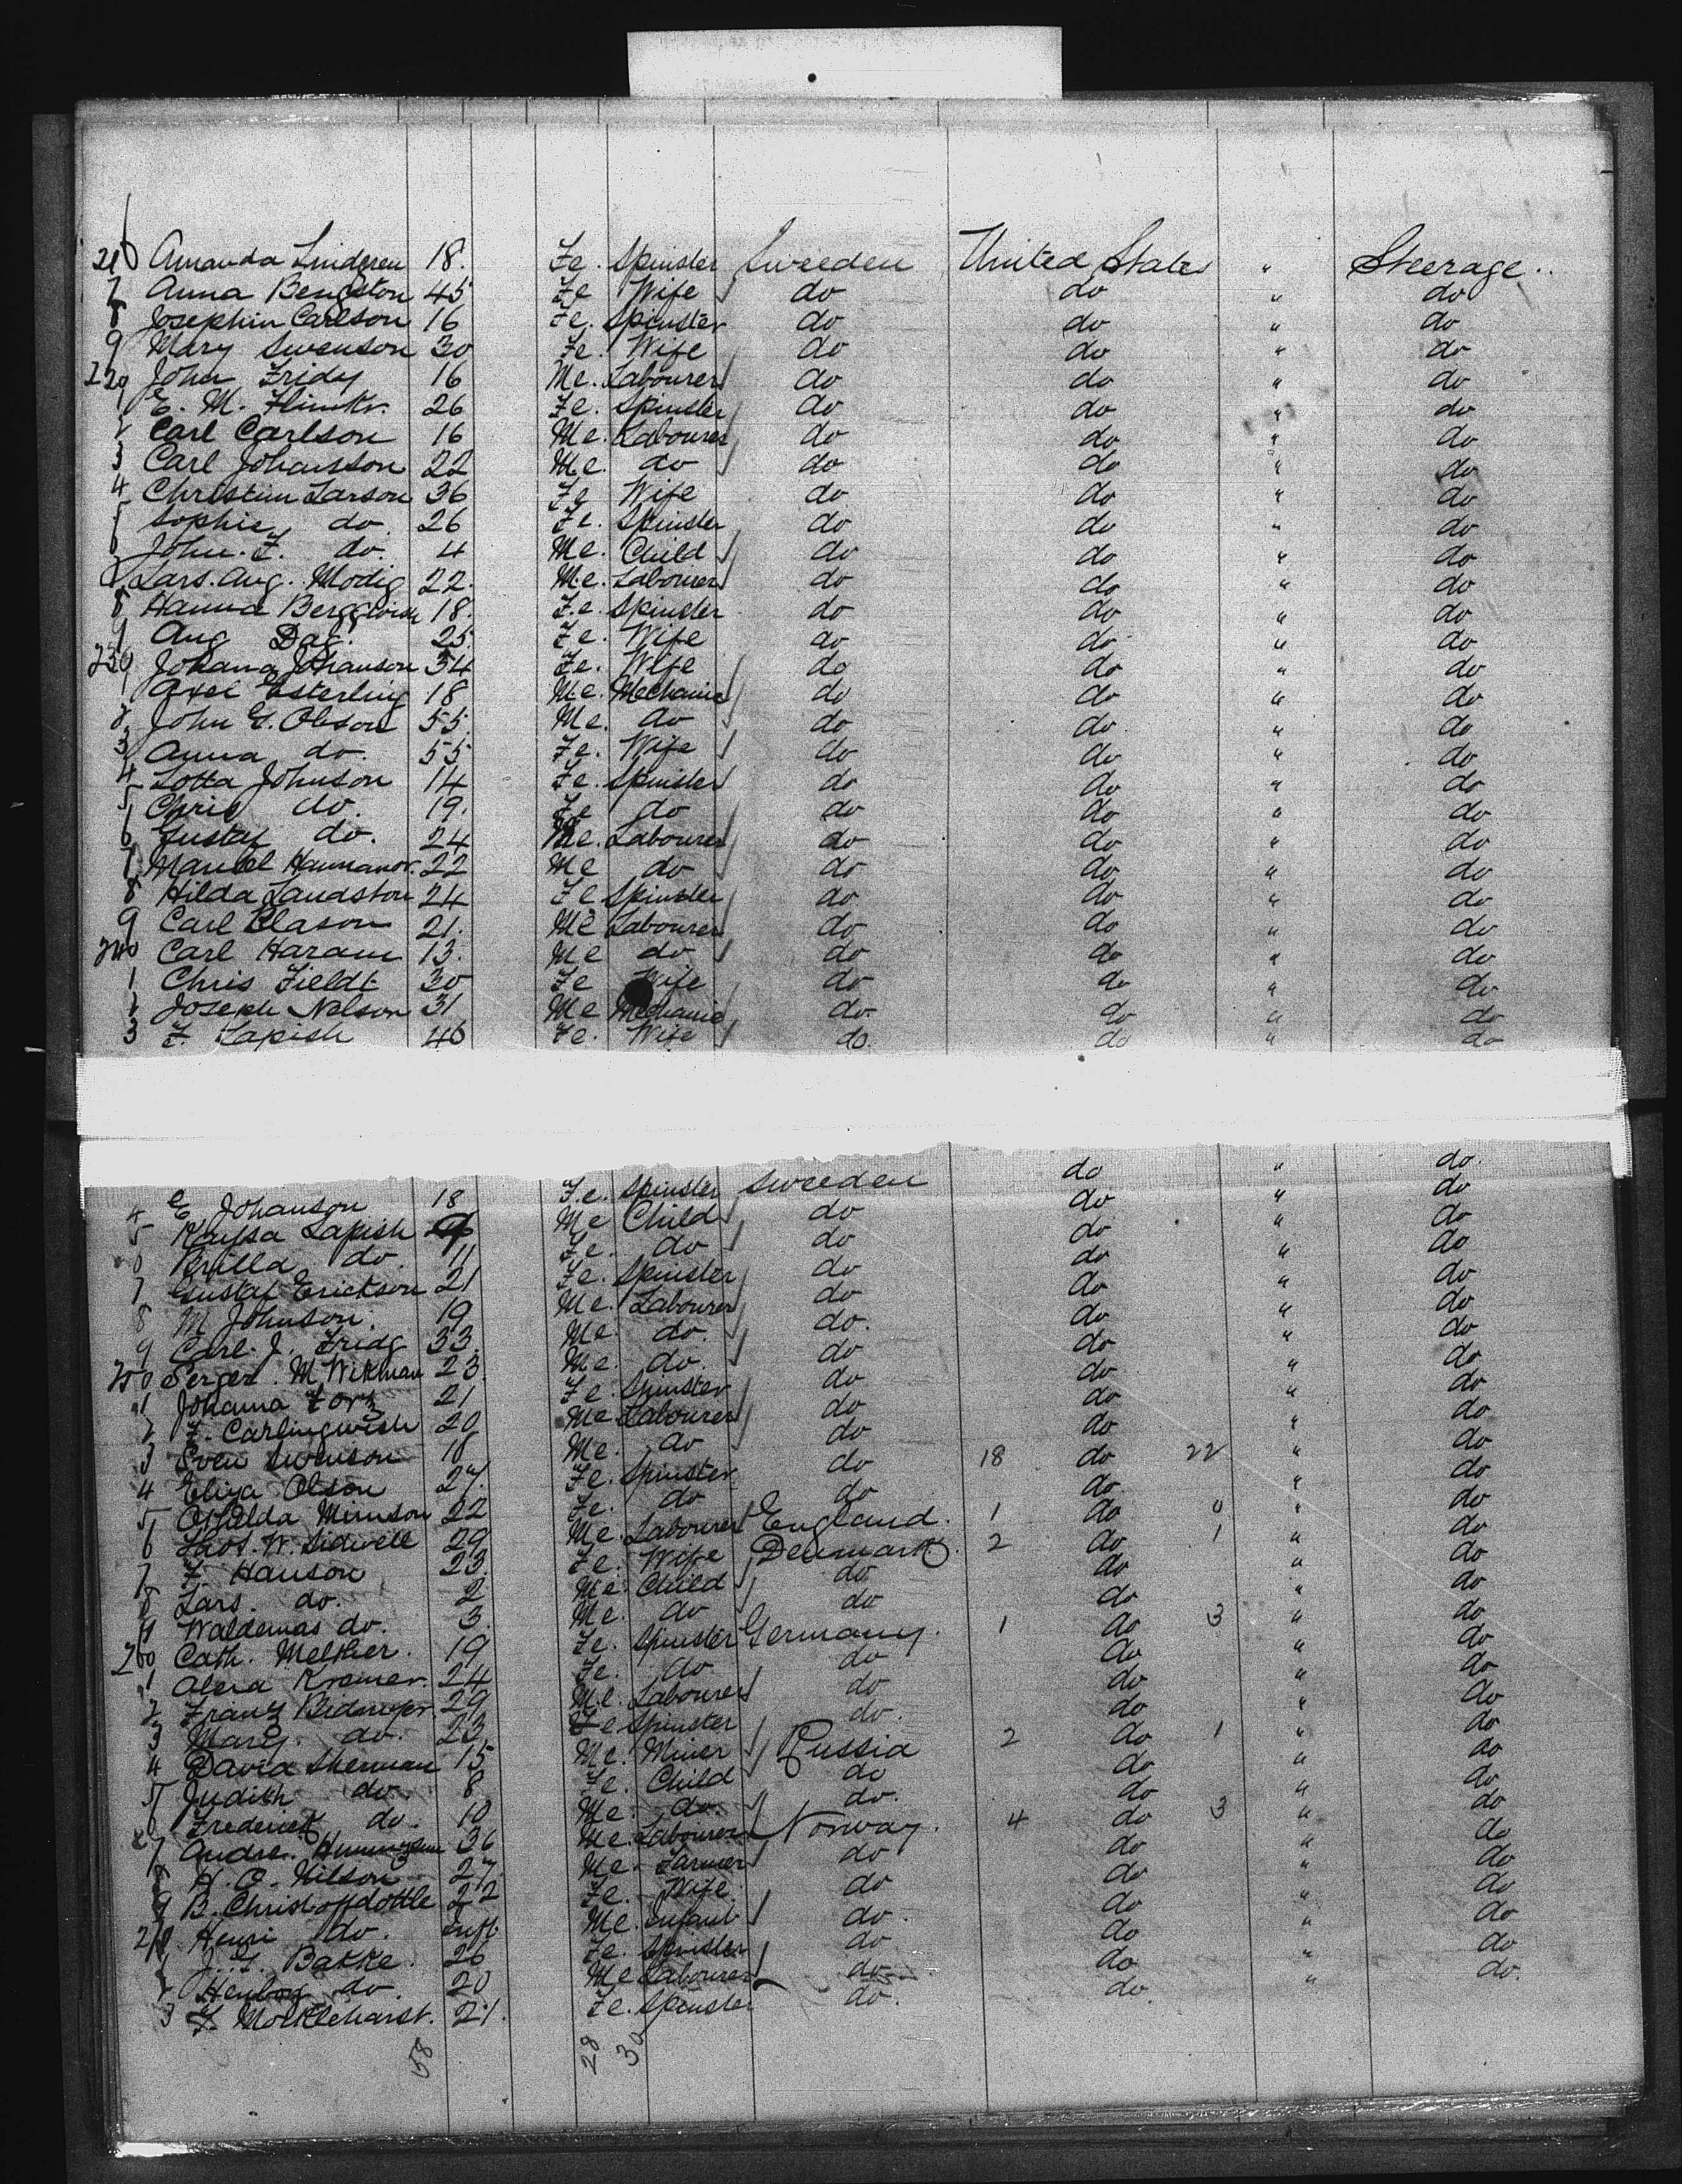 216 Amanda Lindgren 18. Fe. Spinster Sweeden United States " Steerage..
7 Anna Bengston 45 Fe Wife do do " do
8 Josephin Carlson 16 Fe. Spinster do do " do
9 Mary Swenson 30 Fe. Wife do do " do
220 John Fridy 16 Me. Labourer do do " do
E. M. 26 Fe. Spinster do do " do
2 Carl Carlson 16 Me. Labourer do do " do
3 Carl Johansson 22 Me. do do do " do
4 Christin Larson 36 Fe Wife do do " do
5 Sophie do. 26 Fe. Spinster do do " do
6 John. F. do. 4 Me. Child do do " do
7 Lars. Aug. Modig 22. Me. Labourer do do " do
8 Hanna 18. Fe. Spinster do do " do
9 Aug Dag. 25. Fe. Wife do do " do
230 Johana Johanson 34 Fe. Wife do do " do
1 Axel Esterling 18 Me. Mechanic do do " do
2 John G. Oleson 55. Me. do do do. " do
3 Anna do. 55 Fe. Wife do do " do
4 Lotta Johnson 14 Fe. Spinster do do " do
5 Chris do. 19. Fe do do do " do
6 Gustaf do. 24 Me. Labourer do do " do
7 22 Me do do do " do
8 Hilda Landston 24 Fe Spinster do do " do
9 Carl Clason 21. Me Labourer do do " do
240 Carl Haram 13. Me do do do " do
1 Chris Fieldt 30 Fe Wife do do " do
2 Joseph Nelson 31 Me Mechanic do. do " do
3 F. Lapish 46 Fe. Wife do. do " do
4 E Johanson 18 Fe. Spinster Sweeden do " do.
5 Kaysa Lapish Me Child do do " do
6 Brilla do. 11 Fe. do do do " do
7 Gustaf Erickson 21 Fe. Spinster do do " do
8 M Johnson. 19 Me. Labourer do do " do
9 Carl. J. Fridg 33. Me. do. do. do " do
250 M Wikman 23. Me. do. do do " do
1 Johanna 21 Fe. Spinster do do " do
2 F. Carlingwish 20 Me Labourer do do " do
3 Sven Swenson 18 Me. do do do " do
4 Eliza Olson 27. Fe. Spinster do 18 do 22 " do
5 22 Fe. do do do. " do
6 Thos. W. Sidwell 29 Me. Labourer England. 1 do 0 " do
7 F Hanson 23. Fe. Wife Denmark. 2 do 1 " do
8 Lars. do. 2 Me. Child do do " do
9 Waldemas do. 3. Me. do do do " do
260 Cath. Melkier. 19 Fe. Spinster Germany. 1 do 3 " do
1 Kremer. 24 Fe. do do do " do
2 Franz 29 Me. Labourer do do " do
3 Mary. do. 23 Fe Spinster do. do " do
4 David Sherman 15 Me. Miner Russia 2 do 1 " do
5 Judith do. 8 Fe. Child do do " do
6 Frederick do. 10 Me. do. do. do " do
7 Andre. 36 Me. Labourer Norway. 4 do 3 " do
8 H. O. Nilson 27. Me. Farmer do do " do
9 B. Christoffdottle 22 Fe. Wife do do " do
270 Henri do. Inft. Me. Infant do. do " do
1 Bakke. 26 Fe. Spinster do do " do
2 do. 20 Me Labourer do do " do
3 21. Fe. Spinster do. do. " do.
58 28 30